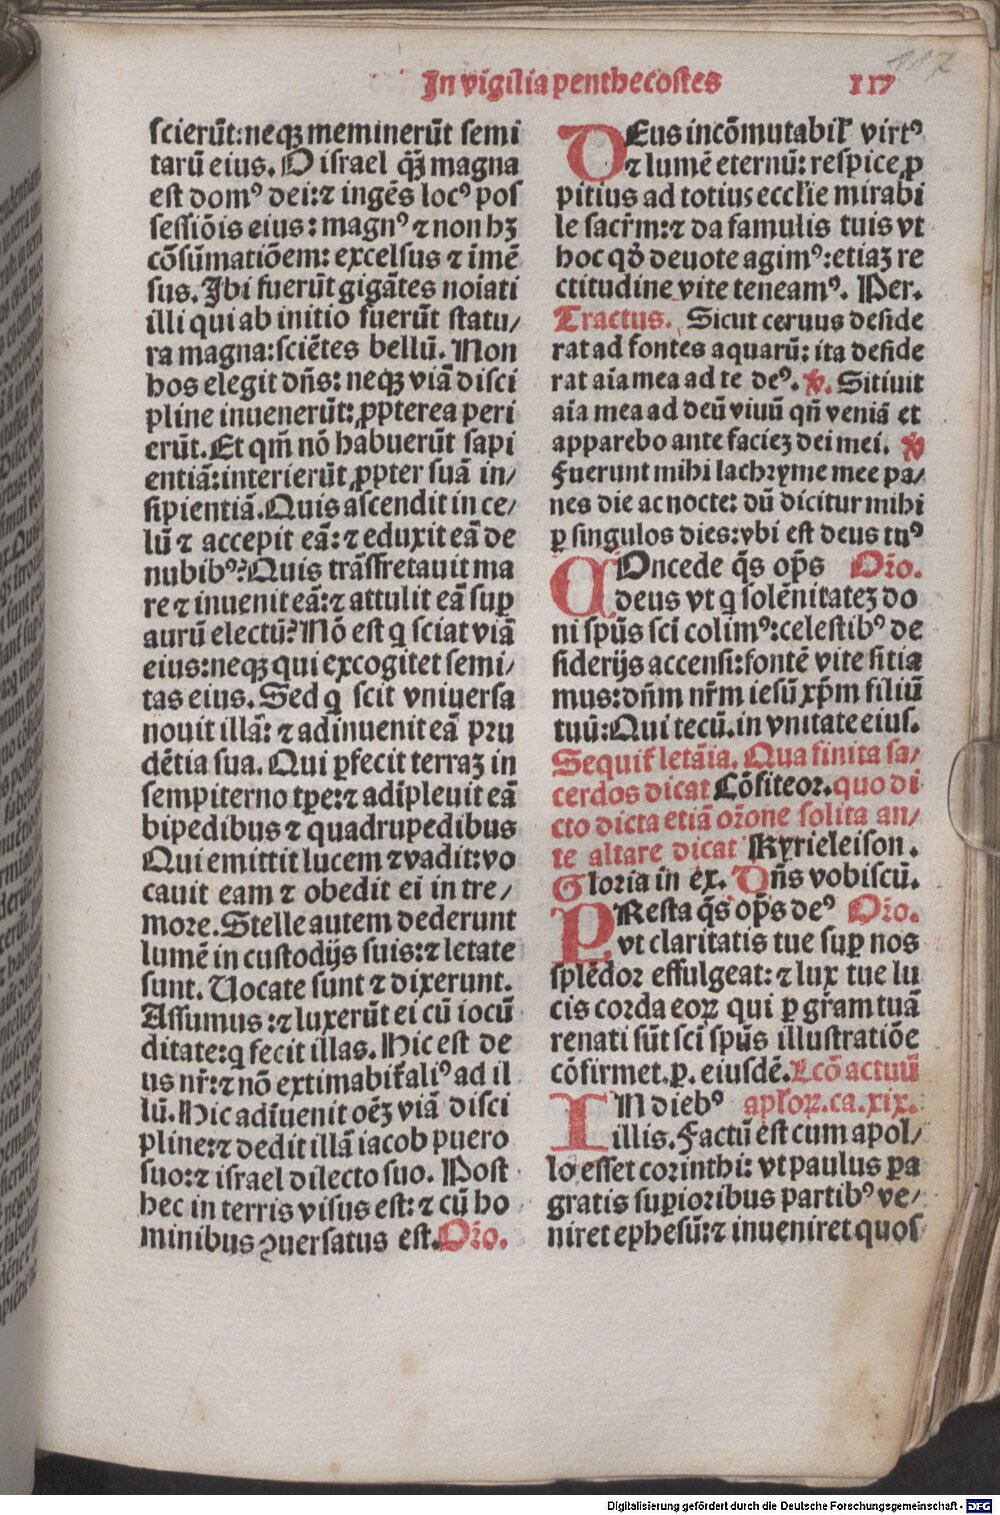 In vigilia penthecostes
117
117
scierūt: neqꝫ meminerūt semi
tarū eius. O israel q̄ꝫ magna
est domꝰ dei: ⁊ ingēs locꝰ pos
sessiōis eius: magnꝰ ⁊ non hꝫ
cōsūmatiōem: excelsus ⁊ imē
sus. Ibi fuerūt gigātes noīati
illi qui ab initio fuerūt statu/
ra magna: sciētes bellū. Non
hos elegit dn̄s: neqꝫ viā disci
pline inuenerūt: ꝓpterea peri
erūt. Et qm̄ nō habuerūt sapi
entiā: interierūt ꝓpter suā in/
sipientiā. Quis ascendit in ce/
lū ⁊ accepit eā: ⁊ eduxit eā de
nubibꝰ? Quis trāsfretauit ma
re ⁊ inuenit eā: ⁊ attulit eā suꝑ
aurū electū? Nō est q̄ sciat viā
eius: neqꝫ qui excogitet semi/
tas eius. Sed q̄ scit vniuersa
nouit illā: ⁊ adinuenit eā pru
dētia sua. Qui ꝑfecit terraꝫ in
sempiterno tꝑe: ⁊ adīpleuit eā
bipedibus ⁊ quadrupedibus
Qui emittit lucem ⁊ vadit: vo
cauit eam ⁊ obedit ei in tre/
more. Stelle autem dederunt
lumē in custodijs suis: ⁊ letate
sunt. Uocate sunt ⁊ dixerunt.
Assumus: ⁊ luxerūt ei cū iocū
ditate: q̄ fecit illas. Hic est de
us nr̄: ⁊ nō extimabit̄ aliꝰ ad il
lū. Hic adīuenit oēꝫ viā disci
pline: ⁊ dedit illā iacob puero
suo: ⁊ israel dilecto suo. Post
hec in terris visus est: ⁊ cū ho
minibus ꝯuersatus est. Or̄o.
DEus incōmutabil̄ virtꝰ
⁊ lumē eternū: respice ꝓ
pitius ad totius eccl̄ie mirabi
le sacr̄m: ⁊ da famulis tuis vt
hoc qd̄ deuote agimꝰ: etiaꝫ re
ctitudine vite teneamꝰ. Per.
Tractus. Sicut ceruus deside
rat ad fontes aquarū: ita deside
rat aīa mea ad te deꝰ. ℣. Sitiuit
aīa mea ad deū viuū qn̄ veniā et
apparebo ante facieꝫ dei mei. ℣
Fuerunt mihi lachryme mee pa/
nes die ac nocte: dū dicitur mihi
ꝑ singulos dies: vbi est deus tuꝰ
COncede q̄s op̄s Or̄o.
deus vt q̄ solēnitateꝫ do
ni sp̄us scī colimꝰ: celestibꝰ de
siderijs accensi: fontē vite sitia
mus: dn̄m nr̄m iesū xp̄m filiū
tuū: Qui tecū. in vnitate eius.
Sequit̄ letāia. Qua finita sa/
cerdos dicat Cōfiteor. quo di
cto dicta etiā or̄one solita an/
te altare dicat Kyrieleison.
Gloria in ex. Dn̄s vobiscū.
PResta q̄s op̄s deꝰ Or̄o.
vt claritatis tue suꝑ nos
splēdor effulgeat: ⁊ lux tue lu
cis corda eoꝝ qui ꝑ gr̄am tuā
renati sūt scī sp̄us illustratiōe
cōfirmet. ꝑ. eiusdē. Lcō actuū
IN diebꝰ apl̄oꝝ. ca. xix.
illis. Factū est cum apol/
lo esset corinthi: vt paulus ꝑa
gratis suꝑioribus partibꝰ ve/
niret ephesū: ⁊ inueniret quos
Digitalisierung gefördert durch die Deutsche Forschungsgemeinschaft - DFG